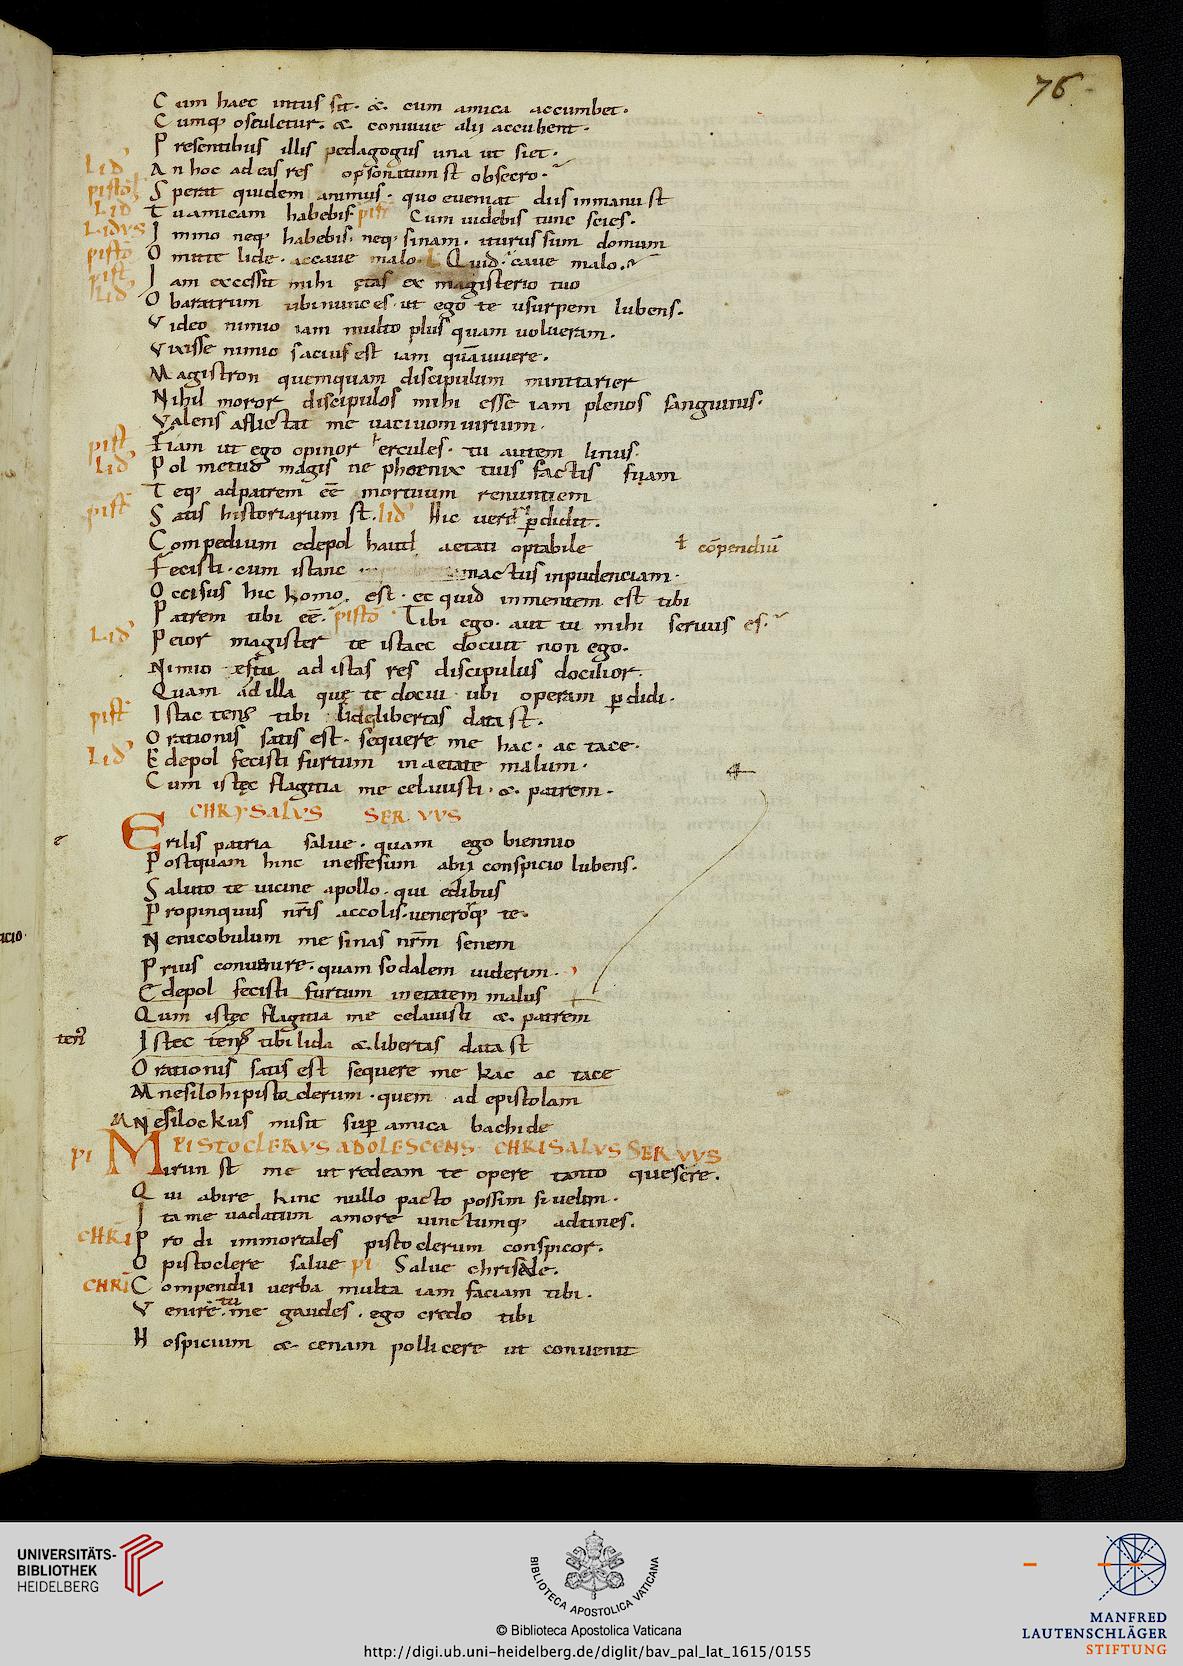 76
Cum haec intus sit. &. cum amica accumbet.
Cumq; osculetur. &. conuiue alij accubent.
Presentibus illis pedagogus una ut siet.
Lid' An hoc ad eas res opsonatum st obsecro.
pisto Sperat quidem animus. quo eueniat diis in manu st
Lid' Tu amicam habebis pist Cum uidebis tunc scies.
Lidvs Immo neq; habebis. neq; sinam. iturus sum domum
pisto Omitte lide. ac caue malo. L Quid. caue malo.
pist Iam excessit mihi ętas ex magisterio tuo
lid' O baratrum ubi nunc es. ut ego te usurpem lubens.
Video nimio iam multo plus quam uolueram.
Vixisse nimio sacius est iam quā uiuere.
Magistron quemquam discipulum minitarier
Nihil moror discipulos mihi esse iam plenos sanguinis.
Valens aflictat me uaciuom uirium.
pist Fiam ut ego opinor hercules. tu autem linus.
Lid' Pol metuo magis ne phoenix tuis factis fuam
Teq; ad patrem eē mortuum renuntiem
pist Satis historiarum st. lid' Hic uereꝰ pdidit.
Compedium edepol haud aetati optabile ł cōpendiū
Fecisti. cum istanc nactus inpudenciam.
Occisus hic homo est. ec quid in mentem est tibi
Patrem tibi eē. pisto Tibi ego. aut tu mihi seruus es.
Lid' Peior magister te istaec docuit non ego.
Nimio es tu ad istas res discipulus docilior.
Quam ad illa quę te docui ubi operam pdidi.
pist Istac tenꝰ tibi lide libertas data st.
Orationis satis est. sequere me hac. ac tace.
Lid' Edepol fecisti furtum in aetate malum.
Cum istęc flagitia me celauisti. &. patrem.
CHRYSALVS SERVVS
e Erilis patria salue. quam ego biennio
Postquam hinc in effesum abij conspicio lubens.
Saluto te uicine apollo. qui edibus
Propinquus nr̄is accolis. ueneroq; te.
Ne nicobulum me sinas nr̄m senem
Prius conuenire. quam sodalem uiderim.
Edepol fecisti furtum in etatem malus
Qum istęc flagitia me celauisti &. patrem
tenꝰ Istec tenꝰ tibi lida & libertas data st
Orationis satis est sequere me hac ac tace
Mnesilohi pistoclerum. quem ad epistolam
Mnesilochus misit sup amica bachide
PISTOCLERVS ADOLESCENS CHRISALVS SERVVS
pi Mirum st me ut redeam te opere tanto quesere.
Qui abire hinc nullo pacto possim si uelim.
Ita me uadatum amore uinctumq; adtines.
CHRI Pro di immortales pistoclerum conspicor.
O pistoclere salue pi Salue chrisale.
CHRI Compendii uerba multa iam faciam tibi.
Venire tu me gaudes. ego credo tibi
Hospicium &. cenam pollicere ut conuenit
UNIVERSITÄTS-
BIBLIOTHEK
HEIDELBERG
BIBLIOTECA APOSTOLICA VATICANA
© Biblioteca Apostolica Vaticana
http://digi.ub.uni-heidelberg.de/diglit/bav_pal_lat_1615/0155
MANFRED
LAUTENSCHLÄGER
STIFTUNG